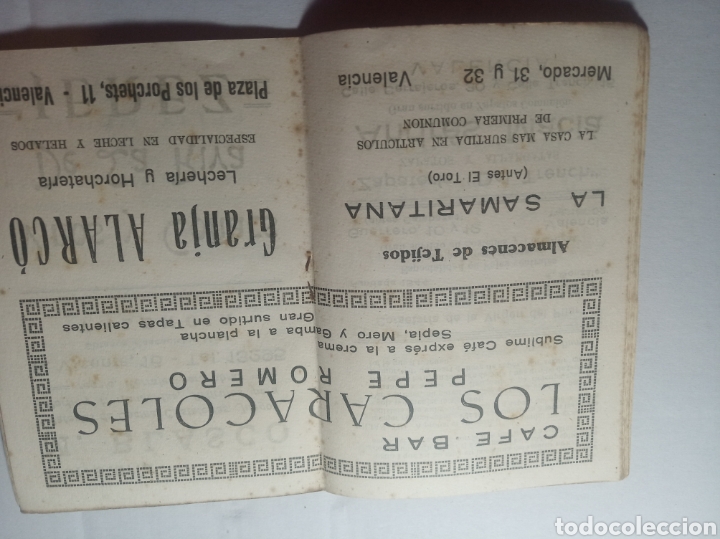 CAFE BAR
LOS CARACOLES
PEPE ROMERO
Sublime Café exprés a la crema
Sepia, Mero y Gamba a la plancha
Gran surtido en Tapas calientes
Almacenes de Tejidos
LA SAMARITANA
(Antes El Toro)
LA CASA MAS SURTIDA EN ARTICULOS
DE PRIMERA COMUNION
Mercado, 31 y 32 Valencia
Granja ALARCÓ
Lechería y Horchatería
ESPECIALIDAD EN LECHE Y HELADOS
Plaza de los Porchets, 11 - Valenci
todocoleccion